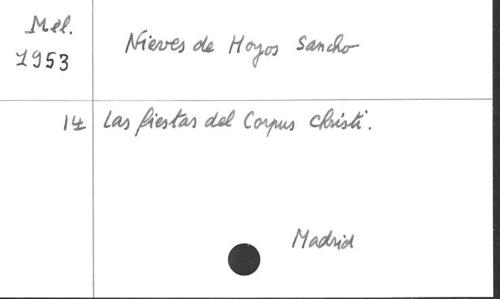 Mél.
1953
Nieves de Hoyos Sancho
14 Las fiestas del Corpus Christi.
Madrid